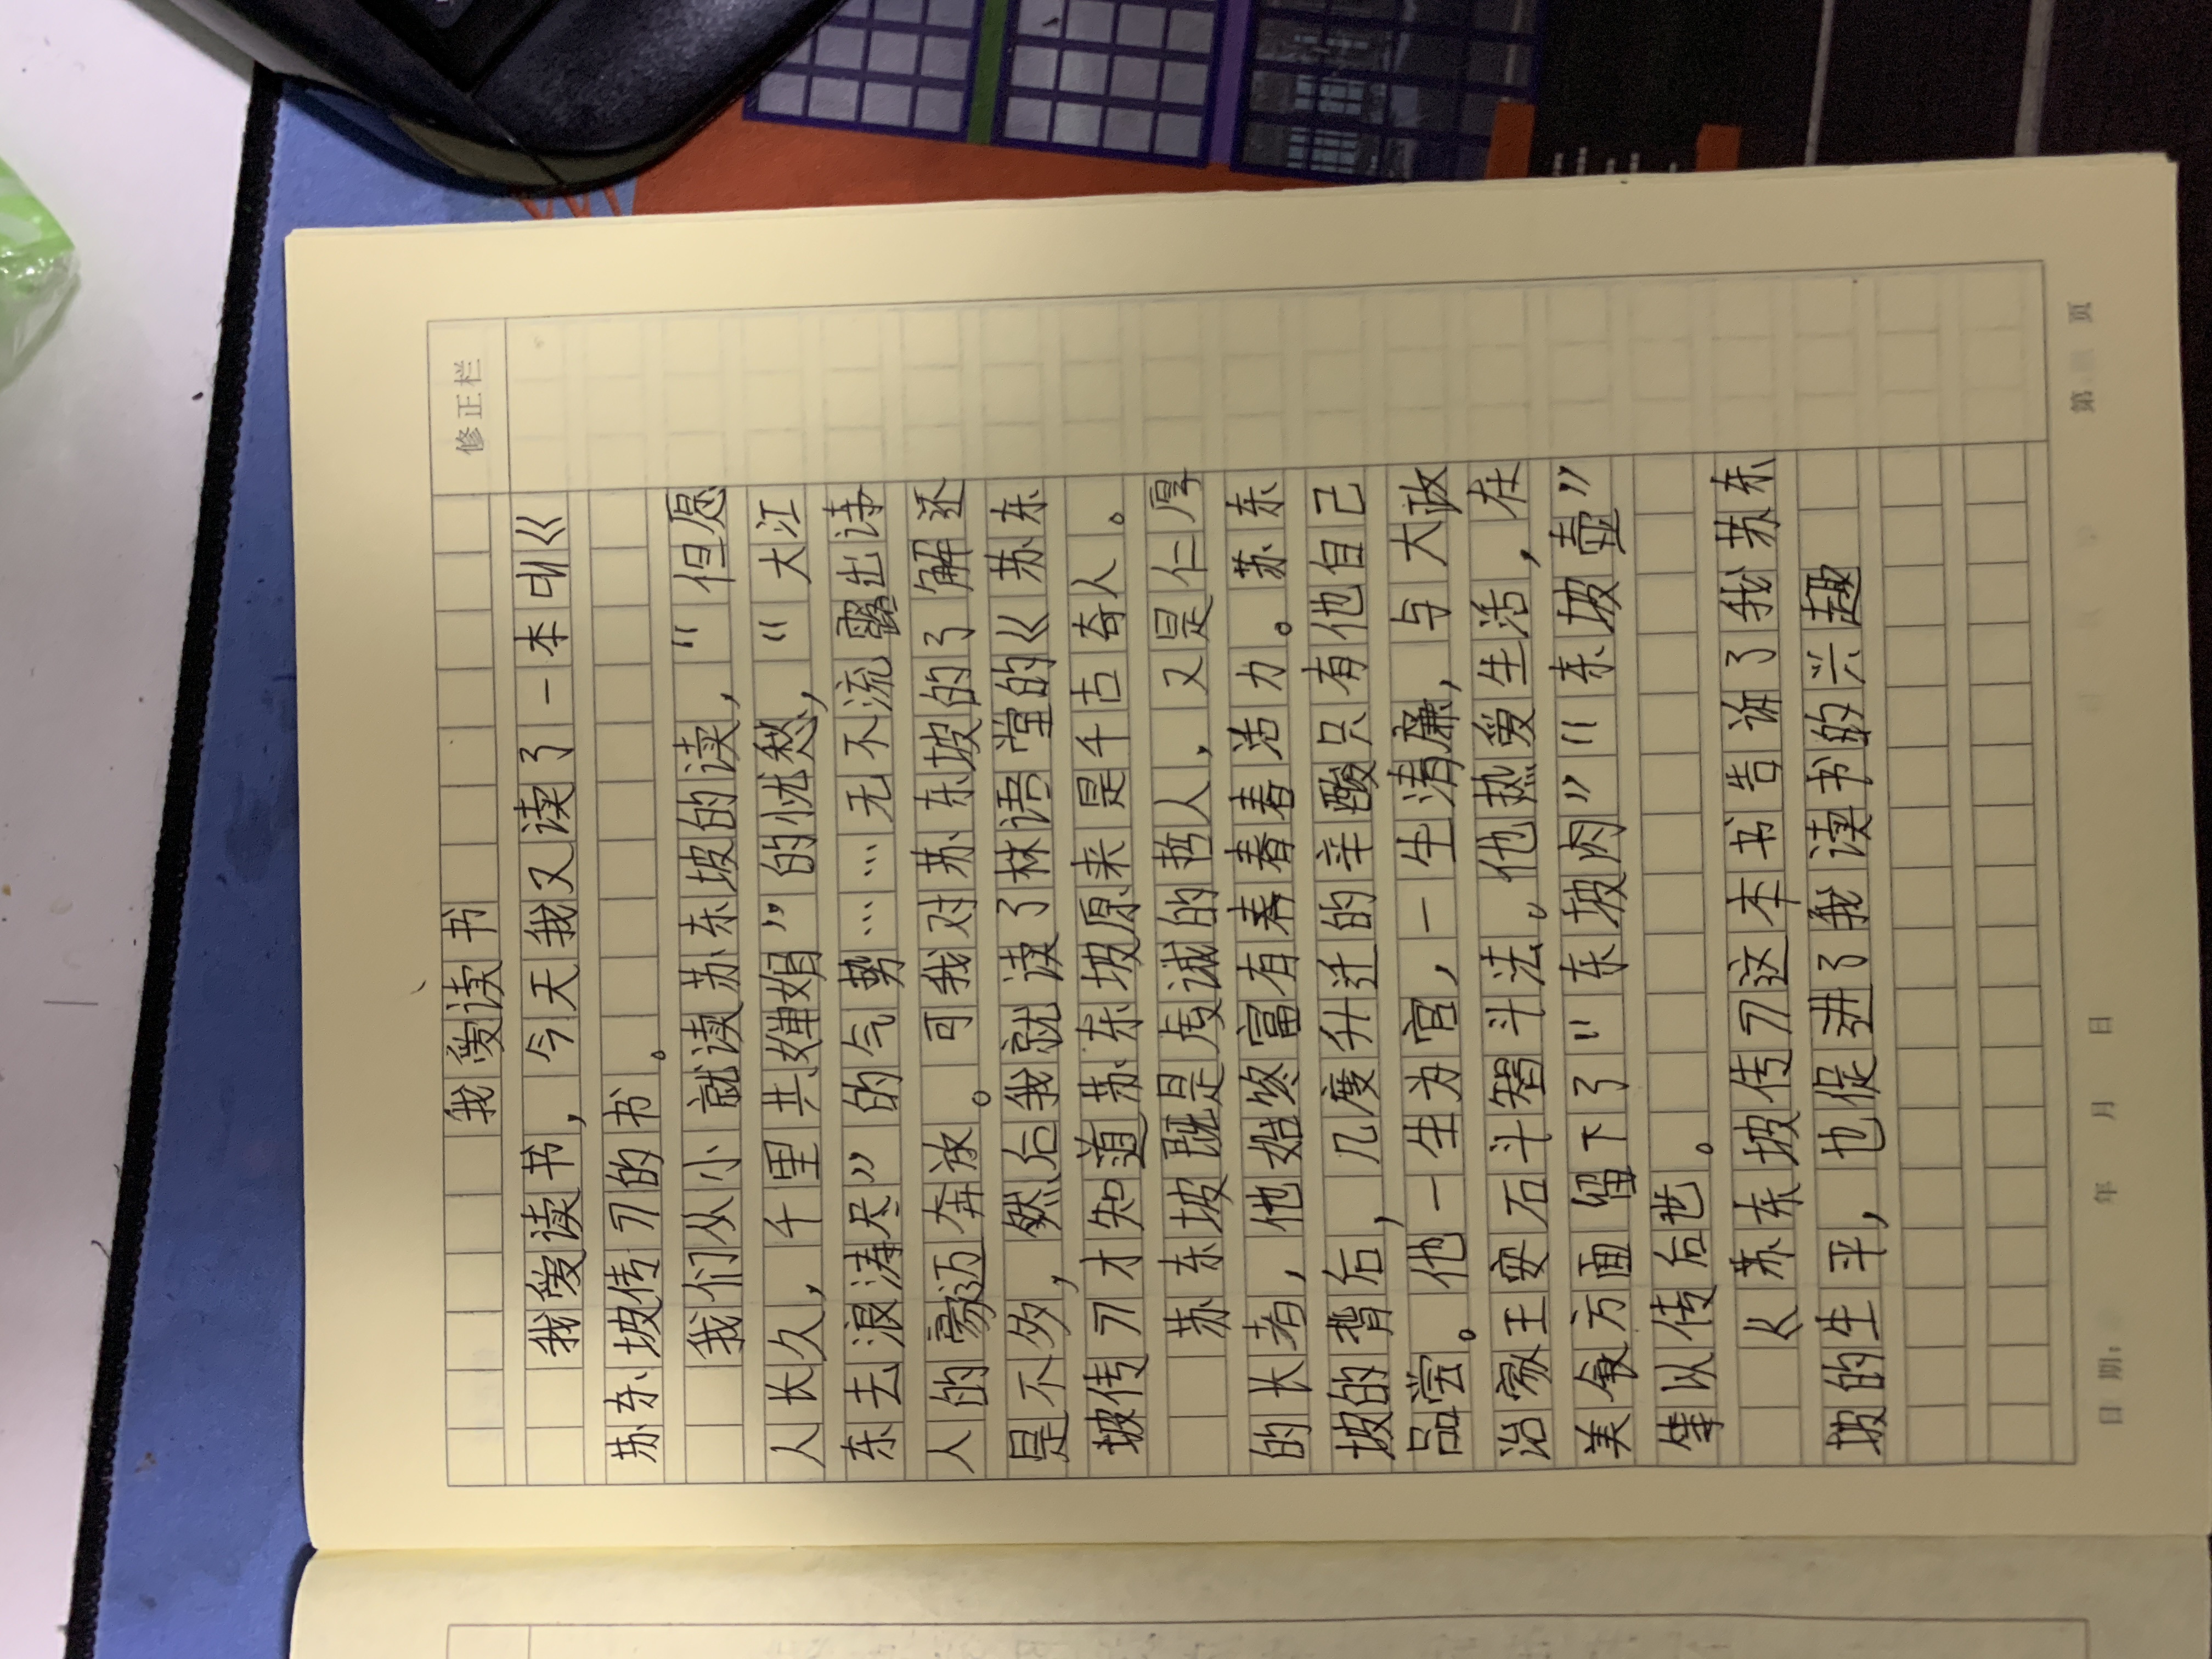 修正栏
我爱读书
我爱读书，今天我又读了一本叫《
苏东坡传》的书。
我们从小就读苏东坡的读，“但愿
人长久，千里共婵娟”的忧愁，“大江
东去浪涛尽”的气势……无不流露出诗
人的豪迈奔放。可我对苏东坡的了解还
是不多，然后我就读了林语堂的《苏东
坡传》才知道苏东坡原来是千古奇人。
苏东坡既是虔诚的哲人，又是仁厚
的长者，他始终富有青春活力。苏东
坡的背后，几度升迁的辛酸只有他自己
品尝。他一生为官，一生清廉，与大政
治家王安石斗智斗法。他热爱生活，在
美食方面留下了“东坡肉”“东坡壶”
等以传后世。
《苏东坡传》这本书告诉了我苏东
坡的生平，也促进了我读书的兴趣
日期： 年 月 日
第 页